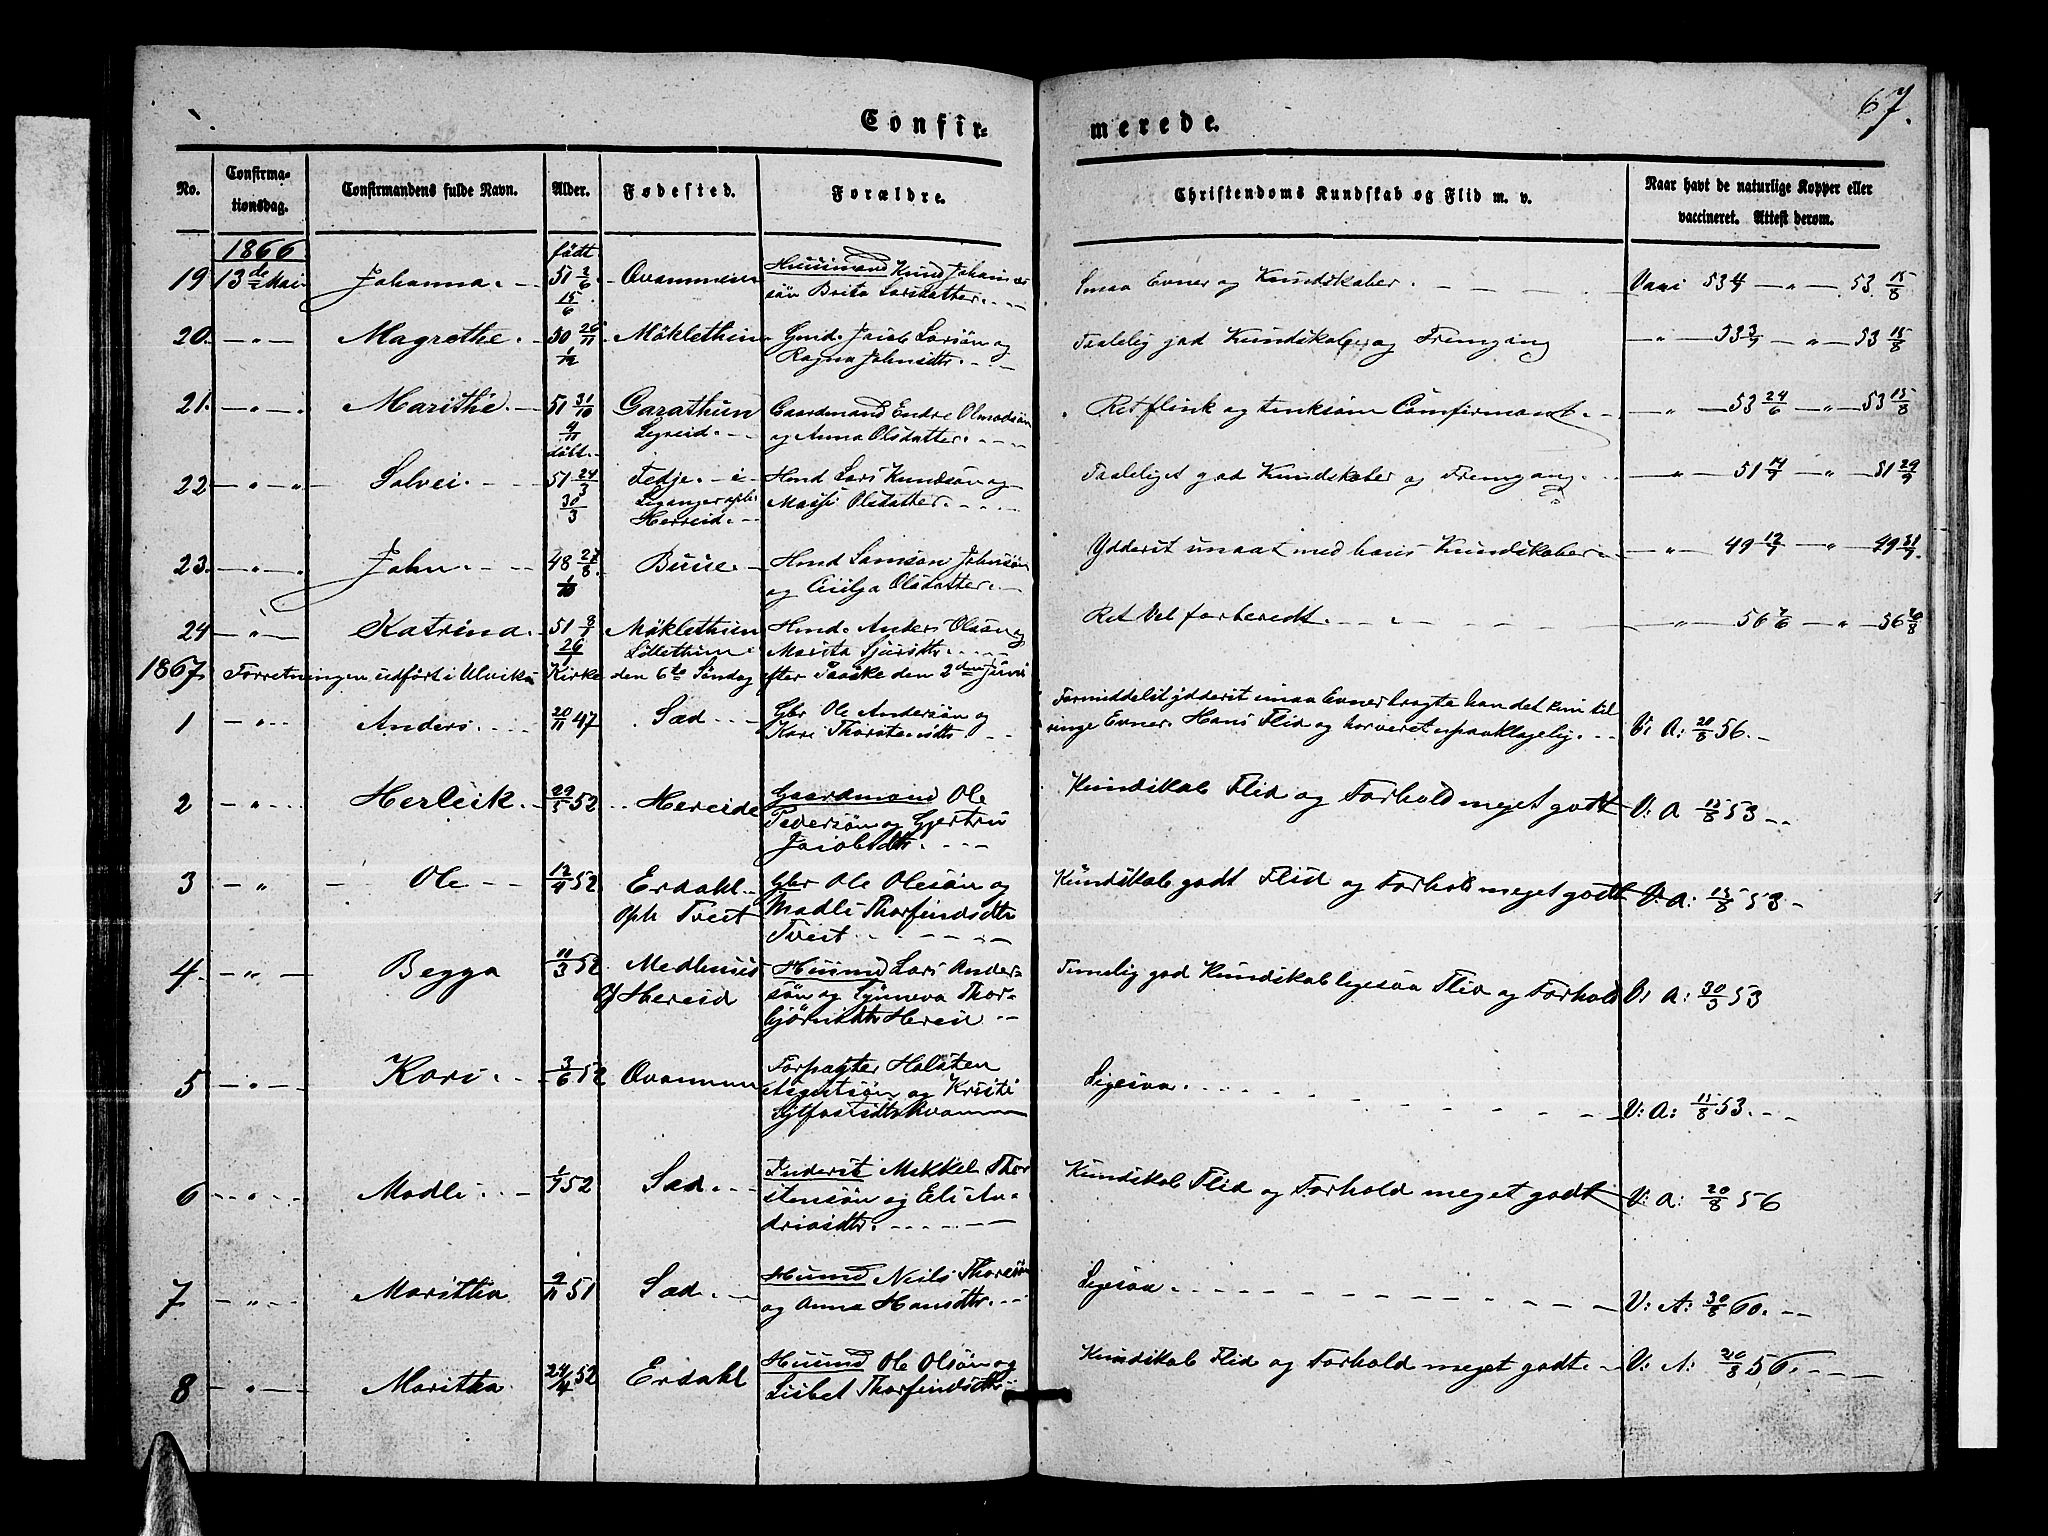 67.
Confir=
merede.
No.
Confirma-
tionsdag.
Confirmandens fulde Navn.
Alder.
Fødested.
Forældre.
Christendoms Kundskab og Flid m. v.
Naar havt de naturlige Kopper eller
vaccineret. Attest derom.
1866
født
19 13de Mai. Johanna. 51 2/6 15/6 Qvammen
Huusmand Knud Johannes
søn Brita Larsdatter.
Smaa Evner og Kundskaber.
53 15/8
20. Magrethe. 50 26/11 1/12 Møklethun
Gmd. Jacob Larsøn og
Ragna Johnsdtr.
god Kundskaber og Fremgang
53 15/8
21. Marithe 51 31/10 9/11 Garathun
Legreid.
Gaardmand Endre
og Anna Olsdatter.
Ret flink og Confirmant.
53 24/6 53 15/8
døbt.
22 Solvei. 51 24/3 30/3 Tedje. i
Herreid.
Hmd Lars Knudsøn og
Olsdatter.
god Kundskaber og Fremgang.
51 29/9
23. John. 48 27/8 1/10 Buue.
Hmd Samson Johnsøn
og Cicilja Olsdatter.
Ydderst smaat med hans Kundskaber.
49 12/7 49 31/7
24 Katrina. 51 26/1 Møklethun
Lillethun.
Hmd. Anders Olsøn og
Marita Sjursdtr.
Ret Vel forberedt.
56 56 20/8
1867. Forretningen udført i Ulviks Kirke den 6te Søndag efter Paaske den 2den Juni
1 Anders. 20/11 47 Sæd.
Gbr Ole Andersøn og
Kari Thorstensdtr.
Formedelst ydderst smaa Evner bragte han det kun til
ringe Evner. Hans Flid og har været upaaklagelig.
V: A: 20/8 56.
2 Herleik. 29/5 52 Hereide
Gaardmand Ole
Pedersøn og Gjertru
Jacobsdtr.
Kundskab Flid og Forhold meget godt
V: A 15/8 53
3 Ole 12/4 52 Erdahl
Oph Tveit
Gbr Ole Olesøn og
Madli Thorfindsdtr
Tveit
Kundskab godt Flid og Forhold meget godt
V: A: 15/8 53
4. Begga 11/3 52 Medhuus
af Hereid
Huusmd Lars Ander-
søn og Synneva Thor-
bjørnsdtr Hereid
Temelig god Kundskab ligesaa Flid og Forhold
V: A: 30/3 53
5 Kari. 3/6 52 Qvammen
Forpagter Halsten
og Kristi
Qvammen
Ligesaa.
V: A: 53.
6 Madli. 1/9 52 Sæd.
Inderst Mikkel Thor
stensøn og Eli An-
driasdtr.
Kundskab Flid og Forhold meget godt
V: A: 20/8 56
7 Maritha 9/11 51 Sæd.
Huusmd Niels Thoresøn
og Anna Hansdtr.
Ligesaa.
V: A: 30/8 60.
8 Maritha. 24/4 52 Erdahl
Huusmd Ole Olsøn og
Lisbet Thorfindsdtr
Kundskab Flid og Forhold meget godt.
V: A: 20/8 56.